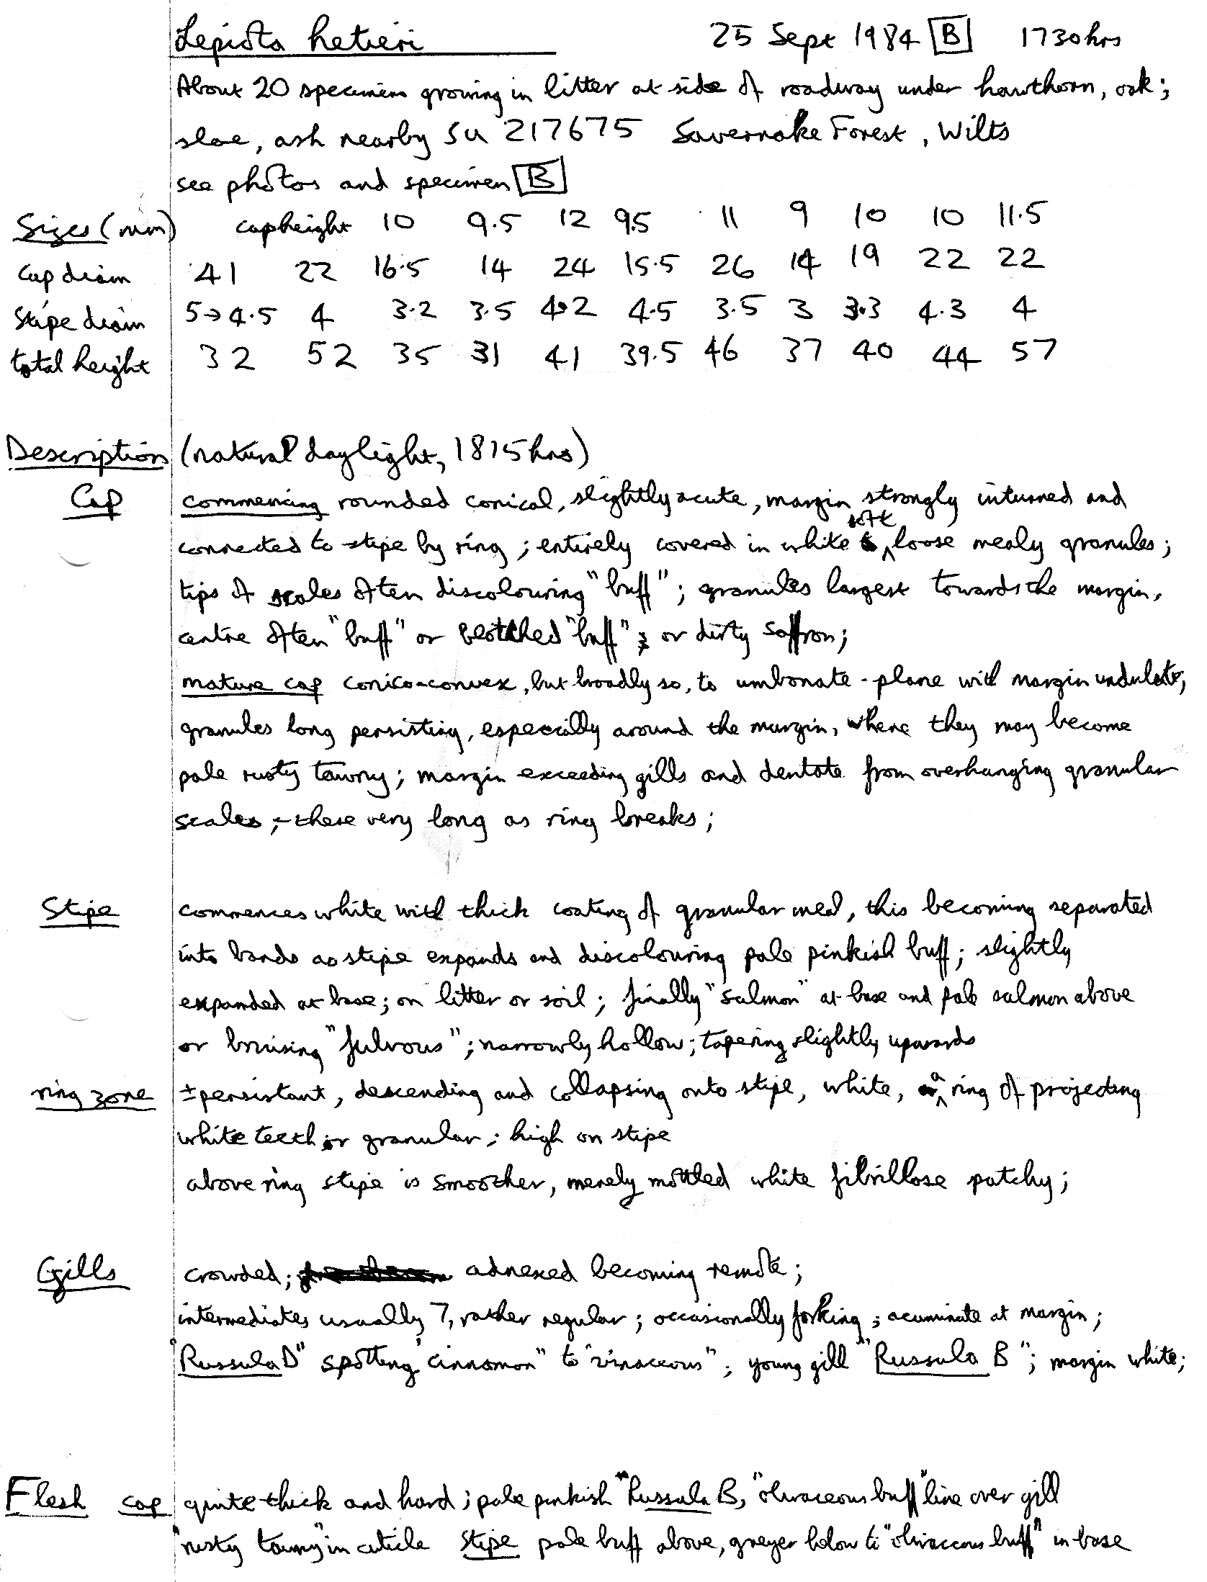 Lepiota hetieri 25 Sept 1984 B 1730hrs
About 20 specimens growing in litter at side of roadway under hawthorn, oak;
sloe, ash nearby SU 217675 Savernake Forest, Wilts
see photos and specimen B
Sizes (mm) cap height 10 9.5 12 9.5 11 9 10 10 11.5
Cap diam 41 22 16.5 14 24 15.5 26 14 19 22 22
Stipe diam 5→4.5 4 3.2 3.5 4.2 4.5 3.5 3 3.3 4.3 4
total height 32 52 35 31 41 39.5 46 37 40 44 57
Description (natural daylight, 1815hrs)
Cap commencing rounded conical, slightly acute, margin strongly inturned and
connected to stipe by ring; entirely covered in white soft loose mealy granules;
tips of scales often discolouring "buff"; granules largest towards the margin,
centre often "buff" or blotched "buff"; or dirty saffron;
mature cap conico-convex, but broadly so, to umbonate-plane with margin undulate;
granules long persisting, especially around the margin, where they may become
pale rusty tawny; margin exceeding gills and dentate from overhanging granular
scales, - these very long as ring breaks;
Stipe commences white with thick coating of granular meal, this becoming separated
into bands as stipe expands and discolouring pale pinkish buff; slightly
expanded at base; on litter or soil; finally "salmon" at base and pale salmon above
or bruising "fulvous"; narrowly hollow; tapering slightly upwards
ring zone ±persistant, descending and collapsing onto stipe, white, a ring of projecting
white teeth or granular; high on stipe
above ring stipe is smoother, merely mottled white fibrillose patchy;
Gills crowded; adnexed becoming remote;
intermediates usually 7, rather regular; occasionally forking; acuminate at margin;
"Russula D" spotting "cinnamon" to "vinaceous"; young gill "Russula B"; margin white;
Flesh cap quite thick and hard; pale pinkish "Russula B, "olivaceous buff" line over gill
"rusty tawny" in cuticle Stipe pale buff above, greyer below to "olivaceous buff" in base